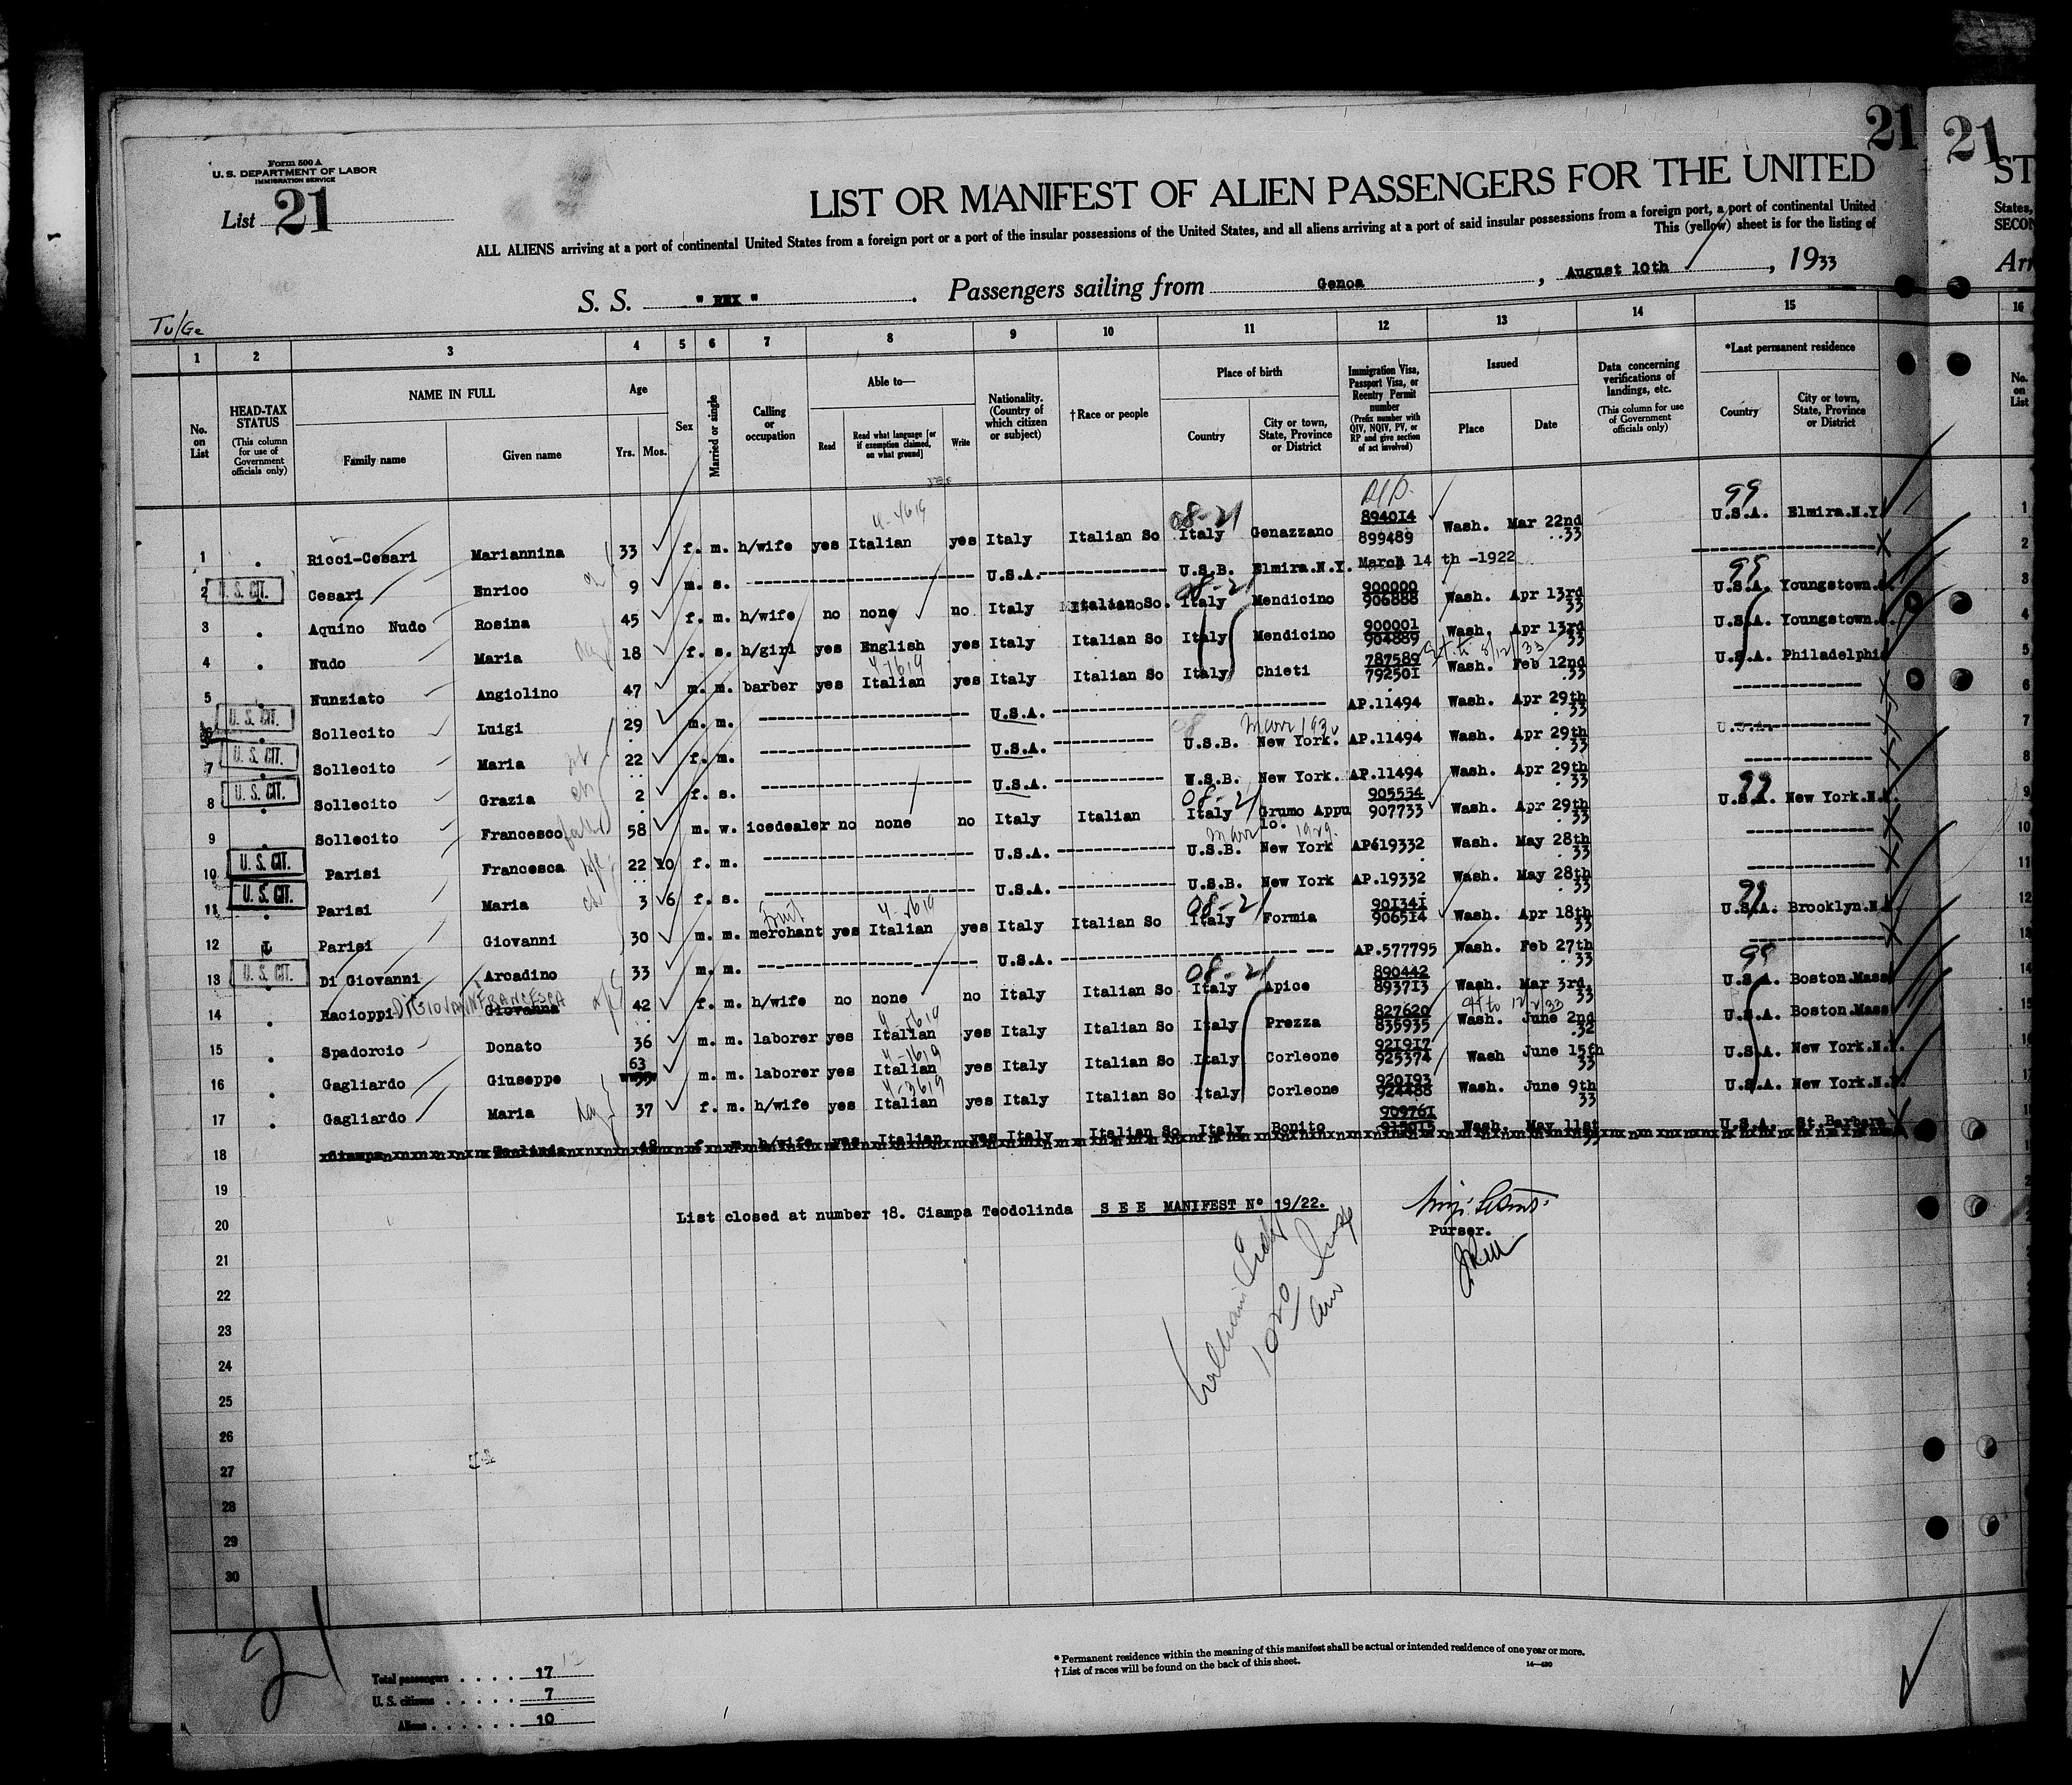 21
21
Form 500 A
U. S. DEPARTMENT OF LABOR
IMMIGRATION SERVICE
List 21
LIST OR MANIFEST OF ALIEN PASSENGERS FOR THE UNITED
ST
ALL ALIENS arriving at a port of continental United States from a foreign port or a port of the insular possessions of the United States, and all aliens arriving at a port of said insular possessions from a foreign port, a port of continental United
States,
This (yellow) sheet is for the listing of
SECON
S. S. " REX " . Passengers sailing from Genoa , August 10th , 1933
Arr
Tu/Ge
1 2 3 4 5 6 7 8 9 10 11 12 13 14 15 16
No. on List
HEAD-TAX STATUS (This column for use of Government officials only)
NAME IN FULL
Family name Given name
Age
Yrs. Mos.
Sex
Married or single
Calling or occupation
Able to—
Read
Read what language [or if exemption claimed, on what ground]
Write
Nationality. (Country of which citizen or subject)
†Race or people
Place of birth
Country
City or town, State, Province or District
Immigration Visa, Passport Visa, or Reentry Permit number (Prefix number with QIV, NQIV, PV, or RP and give section of act involved)
Issued
Place Date
Data concerning verifications of landings, etc. (This column for use of Government officials only)
*Last permanent residence
Country
City or town, State, Province or District
No. on List
1 Ricci-Cesari Mariannina 33 f. m. h/wife yes Italian yes Italy Italian So 08-21 Italy Genazzano 894014 899489 Wash. Mar 22nd 33 99 U.S.A. Elmira.N.Y. 1
2 U. S. CIT. Cesari Enrico 9 m. s. U.S.A. U.S.B. Elmira.N.Y. March 14 th -1922 2
3 Aquino Nudo Rosina 45 f. m. h/wife no none no Italy Italian So. 08-21 Italy Mendicino 900000 906888 Wash. Apr 13rd 33 99 U.S.A. Youngstown. 3
4 Nudo Maria 18 f. s. h/girl yes English yes Italy Italian So Italy Mendicino 900001 904889 Wash. Apr 13rd 33 U.S.A. Youngstown. 4
5 Nunziato Angiolino 47 m. m. barber yes Italian yes Italy Italian So Italy Chieti 787589 792501 Wash. Feb 12nd 33 U.S.A. Philadelphia 5
6 U. S. CIT. Sollecito Luigi 29 m. m. U.S.A. AP.11494 Wash. Apr 29th 33 6
7 U. S. CIT. Sollecito Maria 22 f. m. U.S.A. U.S.B. Marr 1930 New York. AP.11494 Wash. Apr 29th 33 U.S.A. 7
8 U. S. CIT. Sollecito Grazia 2 f. s. U.S.A. U.S.B. New York. AP.11494 Wash. Apr 29th 33 8
9 Sollecito Francesco 58 m. w. icedealer no none no Italy Italian 08-21 Italy Grumo Appu lo. 905554 907733 Wash. Apr 29th 33 99 U.S.A. New York.N. 9
10 U. S. CIT. Parisi Francesca 22 10 f. m. U.S.A. Marr 1929. U.S.B. New York AP619332 Wash. May 28th 33 10
11 U. S. CIT. Parisi Maria 3 6 f. s. U.S.A. U.S.B. New York AP.19332 Wash. May 28th 33 11
12 Parisi Giovanni 30 m. m. fruit merchant yes Italian yes Italy Italian So 08-21 Italy Formia 901341 906514 Wash. Apr 18th 33 99 U.S.A. Brooklyn.N. 12
13 U. S. CIT. Di Giovanni Arcadino 33 m. m. U.S.A. AP.577795 Wash. Feb 27th 33
14 Racioppi DI GIOVANNI FRANCESCA Giovanna 42 f. m. h/wife no none no Italy Italian So 08-21 Italy Apice 890442 893713 Wash. Mar 3rd. 33 99 U.S.A. Boston.Mass 14
15 Spadorcio Donato 36 m. m. laborer yes Italian yes Italy Italian So Italy Prezza 827620 835935 Wash. June 2nd .32 U.S.A. Boston.Mass 15
16 Gagliardo Giuseppe 63 m. m. laborer yes Italian yes Italy Italian So Italy Corleone 921917 925374 Wash June 15th 33 U.S.A. New York.N.Y.
17 Gagliardo Maria 37 f. m. h/wife yes Italian yes Italy Italian So Italy Corleone 920193 924488 Wash. June 9th 33 U.S.A. New York.N.Y.
18 Ciampa 48 f. m. h/wife yes Italian yes Italy Italian So Italy Bonito 909761 Wash. May 11st 33 U.S.A. St.Barbara
19
List closed at number 18. Ciampa Teodolinda SEE MANIFEST Nº 19/22.
20
Purser.
21
22
23
24
25
26
27
28
29
30
21
Total passengers . . . . . 17
U. S. citizens . . . . . . 7
Aliens . . . . . . . 10
* Permanent residence within the meaning of this manifest shall be actual or intended residence of one year or more.
† List of races will be found on the back of this sheet.
14—430